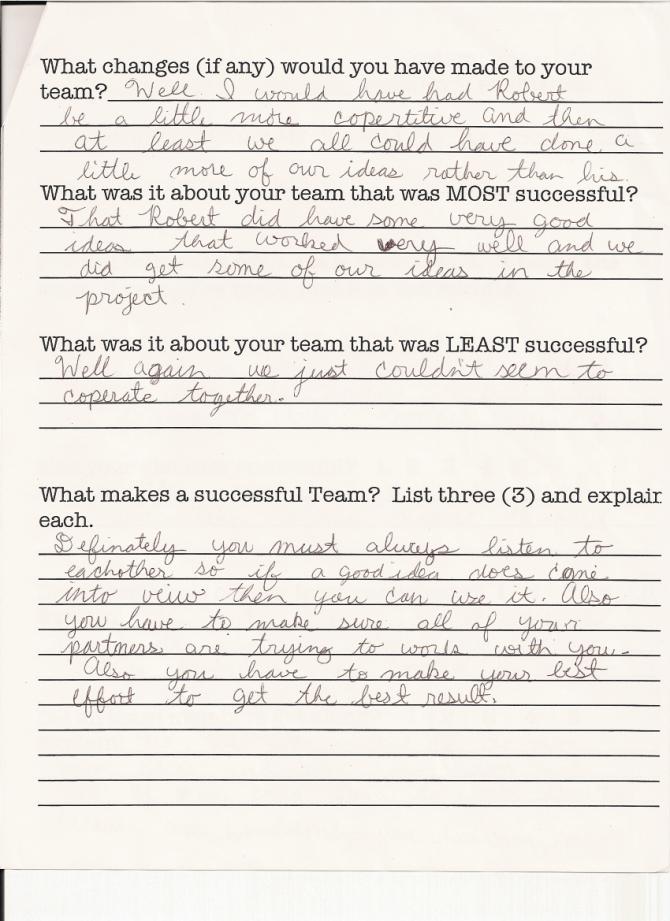 What changes (if any) would you have made to your
team? Well I would have had Robert
be a little more copertitive and then
at least we all could have done a
little more of our ideas rather than his.
What was it about your team that was MOST successful?
That Robert did have some very good
ideas that worked very well and we
did get some of our ideas in the
project.
What was it about your team that was LEAST successful?
Well again we just couldn't seem to
coperate together.
What makes a successful Team? List three (3) and explain
each.
Definately you must always listen to
eachother so if a good idea does come
into veiw then you can use it. Also
you have to make sure all of your
partners are trying to work with you.
Also you have to make your best
effort to get the best result.